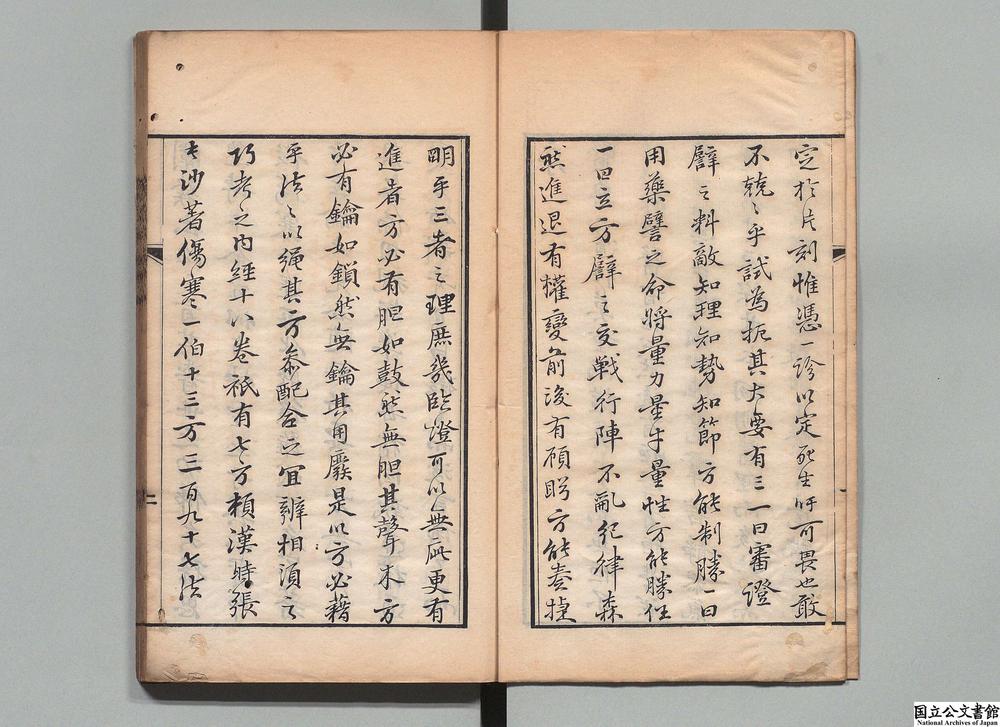 定於片刻惟憑一診以定死生吁可畏也敢
不兢〻乎試為扼其大要有三一曰審證
譬之料敵知理知勢知節方能制勝一曰
用藥譬之命將量力量才量性方能勝任
一曰立方譬之交戰行陣不亂紀律森
然進退有權變前後有顧盼方能奏捷
明乎三者之理庶幾臨證可以無疵更有
進者方必有胆如鼓然無胆其聲木方
必有鑰如鎖然無鑰其用廢是以方必藉
乎法〻以繩其方叅配合之宜辨相須之
巧考之内經十八卷祇有七方頼漢時張
長沙著傷寒一伯十三方三百九十七法
二
国立公文書館
National Archives of Japan